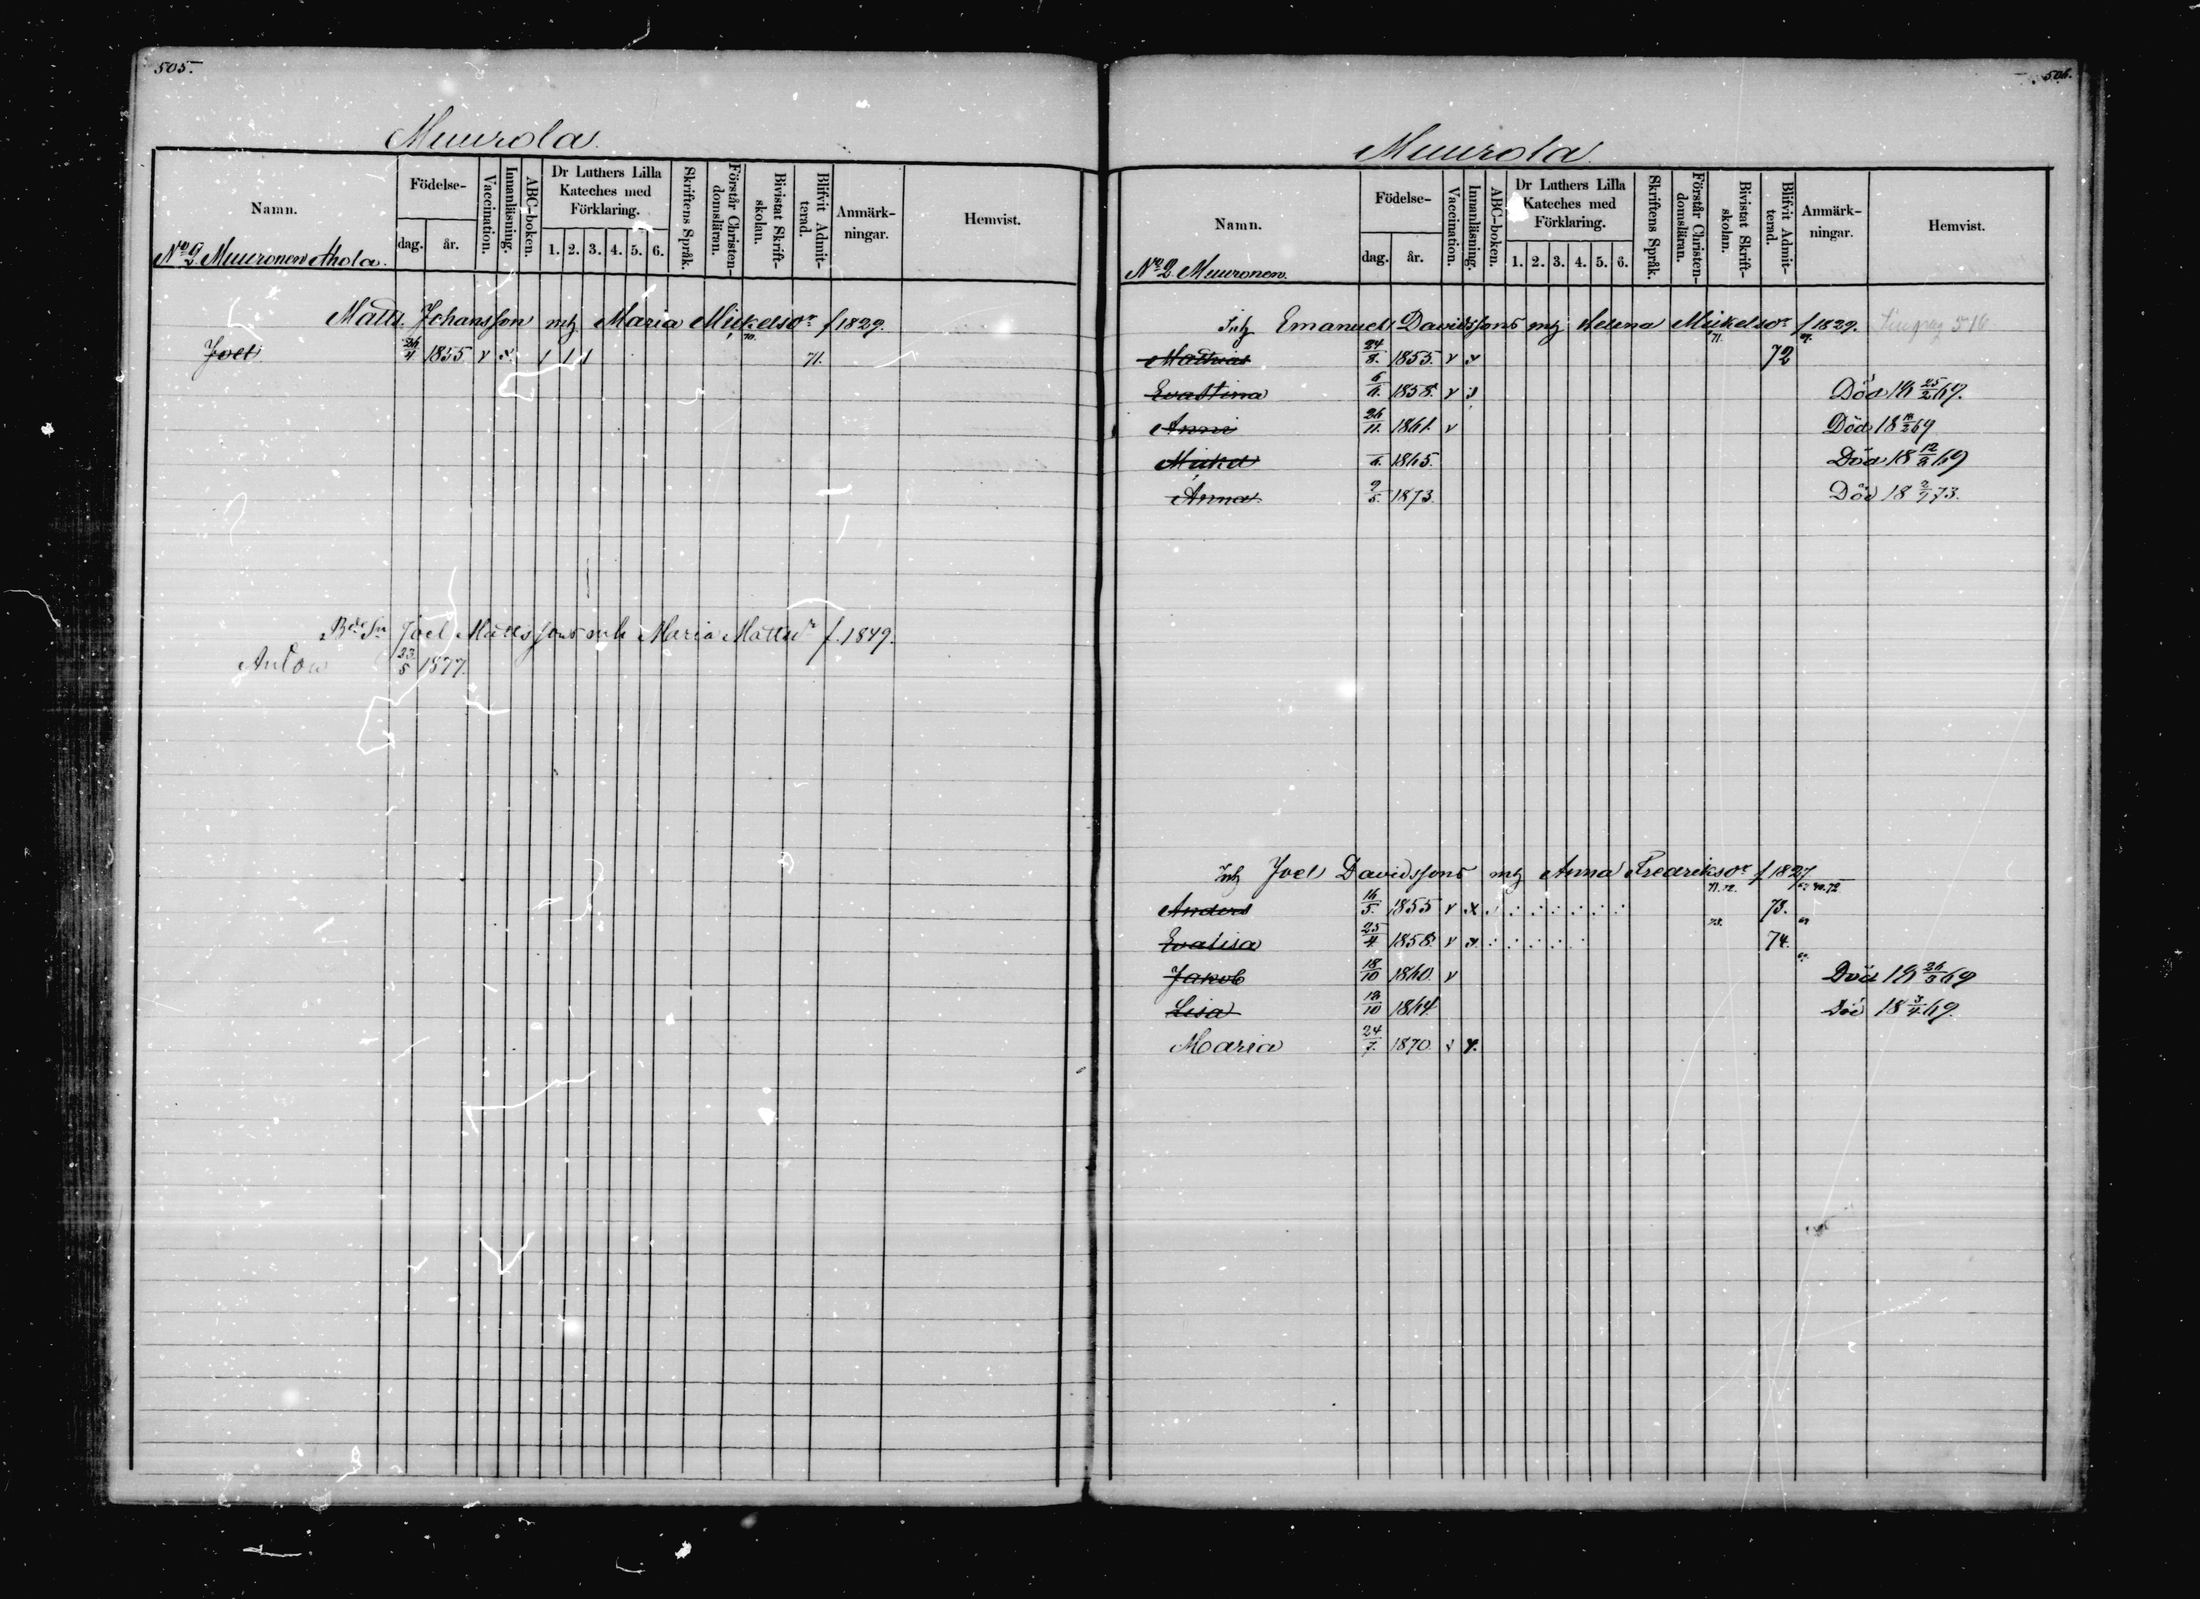 505.
Muurola.
Namn.
Födelse-
dag.
år.
Vaccination.
Innanläsning.
ABC-boken.
Dr Luthers Lilla
Kateches med
Förklaring.
1. 2. 3. 4. 5. 6.
Skriftens Språk.
Förstår Christen-
domsläran.
Bivistat Skrift-
skolan.
Blifvit Admit-
terad.
Anmärk-
ningar.
Hemvist.
No 2 Muuronen Ahola.
Matts Johansson mh Maria Mickelsdr f 1829.
70.
Joel 26/4 1855 v x. / / / 71.
Bde Sn Joel Mattssons mh Maria Mattsdr f. 1849.
Anton 23/5 1877.
506.
Muurola
Namn.
Födelse-
dag.
år.
Vaccination.
Innanläsning.
ABC-boken.
Dr Luthers Lilla
Kateches med
Förklaring.
1. 2. 3. 4. 5. 6.
Skriftens Språk.
Förstår Christen-
domsläran.
Bivistat Skrift-
skolan.
Blifvit Admit-
terad.
Anmärk-
ningar.
Hemvist.
No 2 Muuronen.
Inh Emanuel Davidssons mh Helena Mickelsdr f 1829.
71.
Mathias 1855. v x 72
Evastina 1858. v Död 18 25/2 69.
Anni 26/11. 1861. v Död 18 69
Mickel 1865. Död 18 69
Anna 1873. Död 18 73.
Inh Joel Davidssons mh Anna Fredriksdr f 1827
71. 72.
Anders 16/5. 1855 v x 73.
73.
Evalisa 25/4 1858. v x. 74.
Jakob 18/10 1860. v Död 18 69
Lisa 1864. Död 18 69.
Maria 1870. v x.